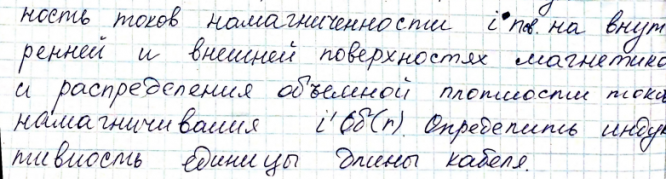 ность токов намагниченности i' пов. на внут
ренней и внешней поверхностях магнетика
и распределения объемной плотности тока
намагничивания i' об(r) Определить индук
тивность единицы длины кабеля.